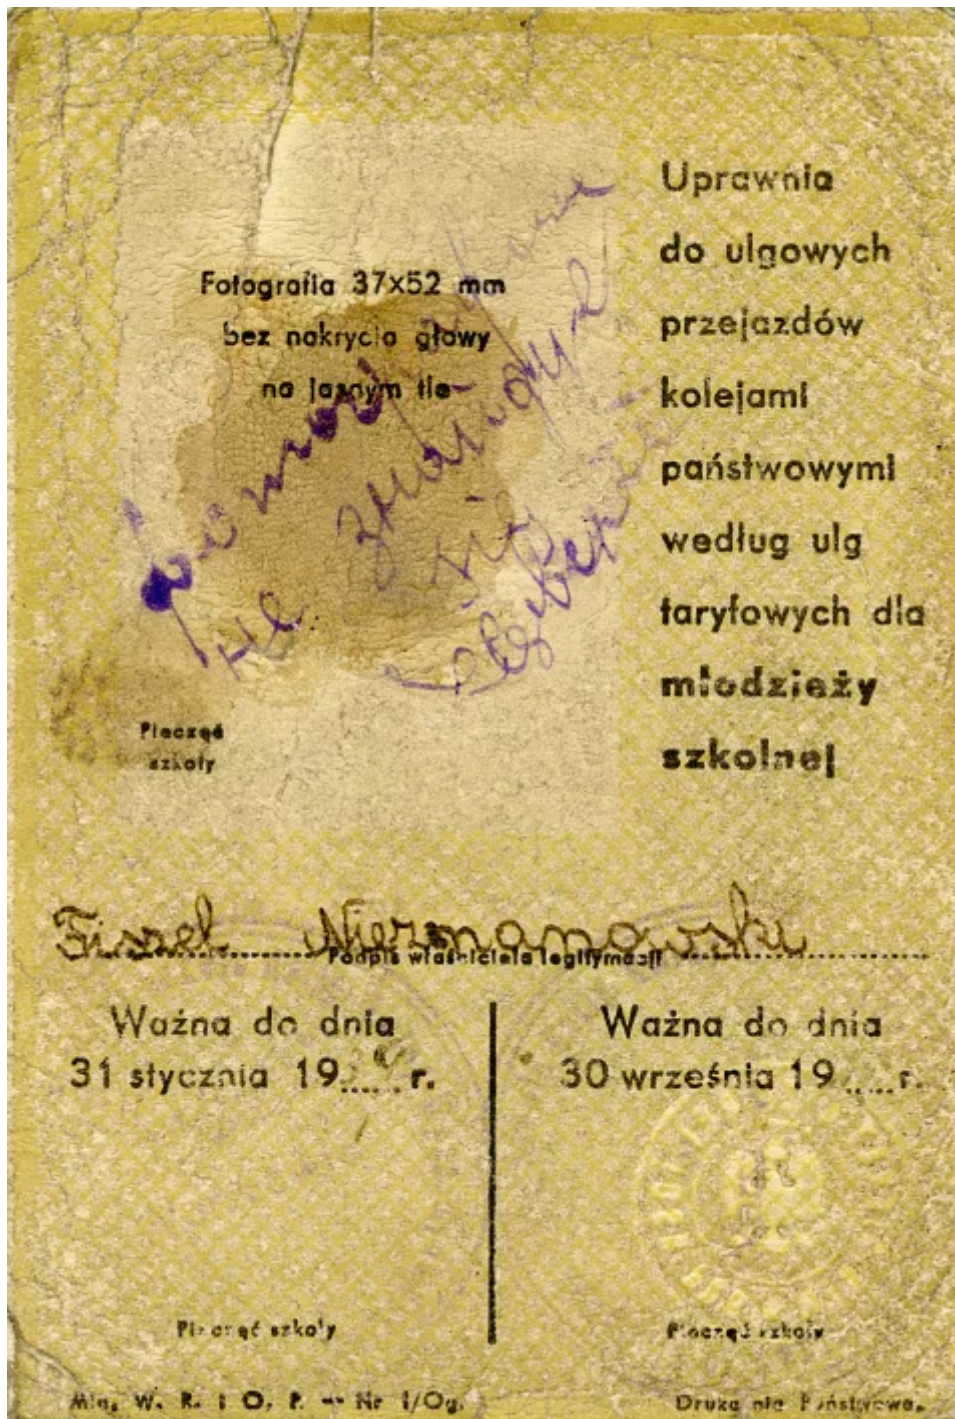 Fotografia 37x52 mm
bez nakrycia głowy
na jasnym tle
Pieczęć
szkoły
Uprawnia
do ulgowych
przejazdów
kolejami
państwowymi
według ulg
taryfowych dla
młodzieży
szkolnej
się
Fiszel Niermanowski
Podpis właściciela legitymacji
Ważna do dnia
31 stycznia 19 r.
Pieczęć szkoły
Ważna do dnia
30 września 19 r.
Pieczęć szkoły
Min. W. R. i O. P. — Nr 1/Og.
Drukarnia Państwowa.